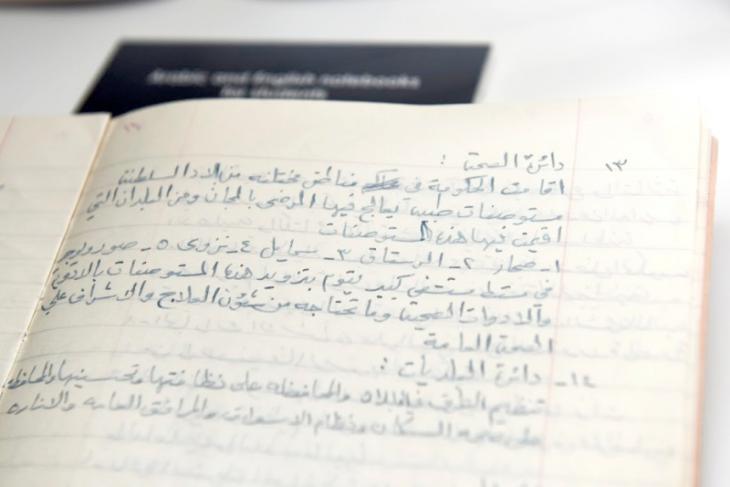 Arabic and English notebooks
for students
١٣ دائرة الصحة :
اقامت الحكومة في مناطق مختلفه من البلاد السلطنة
مستوصفات طبية يعالج فيها المرضى بالمجان ومن البلدان التي
اقيمت فيها هذه المستوصفات
١- صحار ٢- الرستاق ٣- سمايل ٤- نزوى ٥- صور
في مسقط مستشفى كبير يقوم بتزويد هذه المستوصفات بالادوية
والادوات الصحية وما تحتاجه من شئون العلاج والاشراف على
الصحة العامة
١٤- دائرة البلديات :
تنظيم الطرق والمحافظه على نظافتها وتحسينها والمحافظة
على السكان ونظام الاسواق والمرافق العامه والاناره